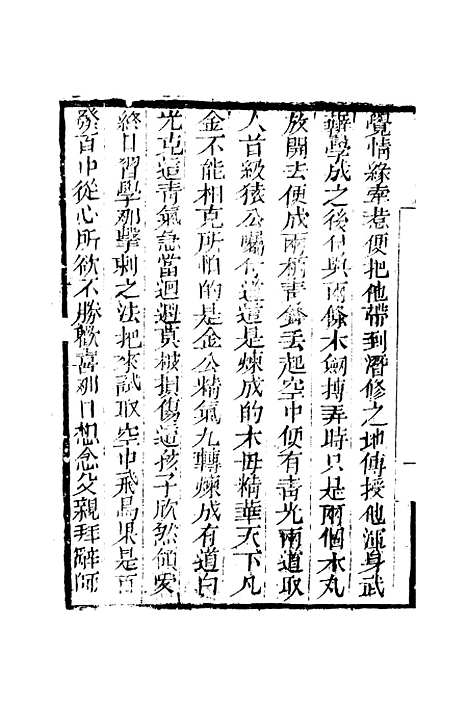 覺情緣牽惹便把他帶到潛修之地傳授他渾身武
藝學成之後付與兩條木劍摶弄時只是兩個木丸
放開去便成兩柄青鋒丟起空中便有青光兩道取
人首級猿公囑付道這是煉成的木母精華天下凡
金不能相克所怕的是金公精氣九轉煉成有道白
光克這青氣急當迴避莫被損傷這孩子欣然領受
終日習學那擊刺之法把來試取空中飛鳥果是百
發百中從心所欲不勝歡喜那日想念父親拜辭師